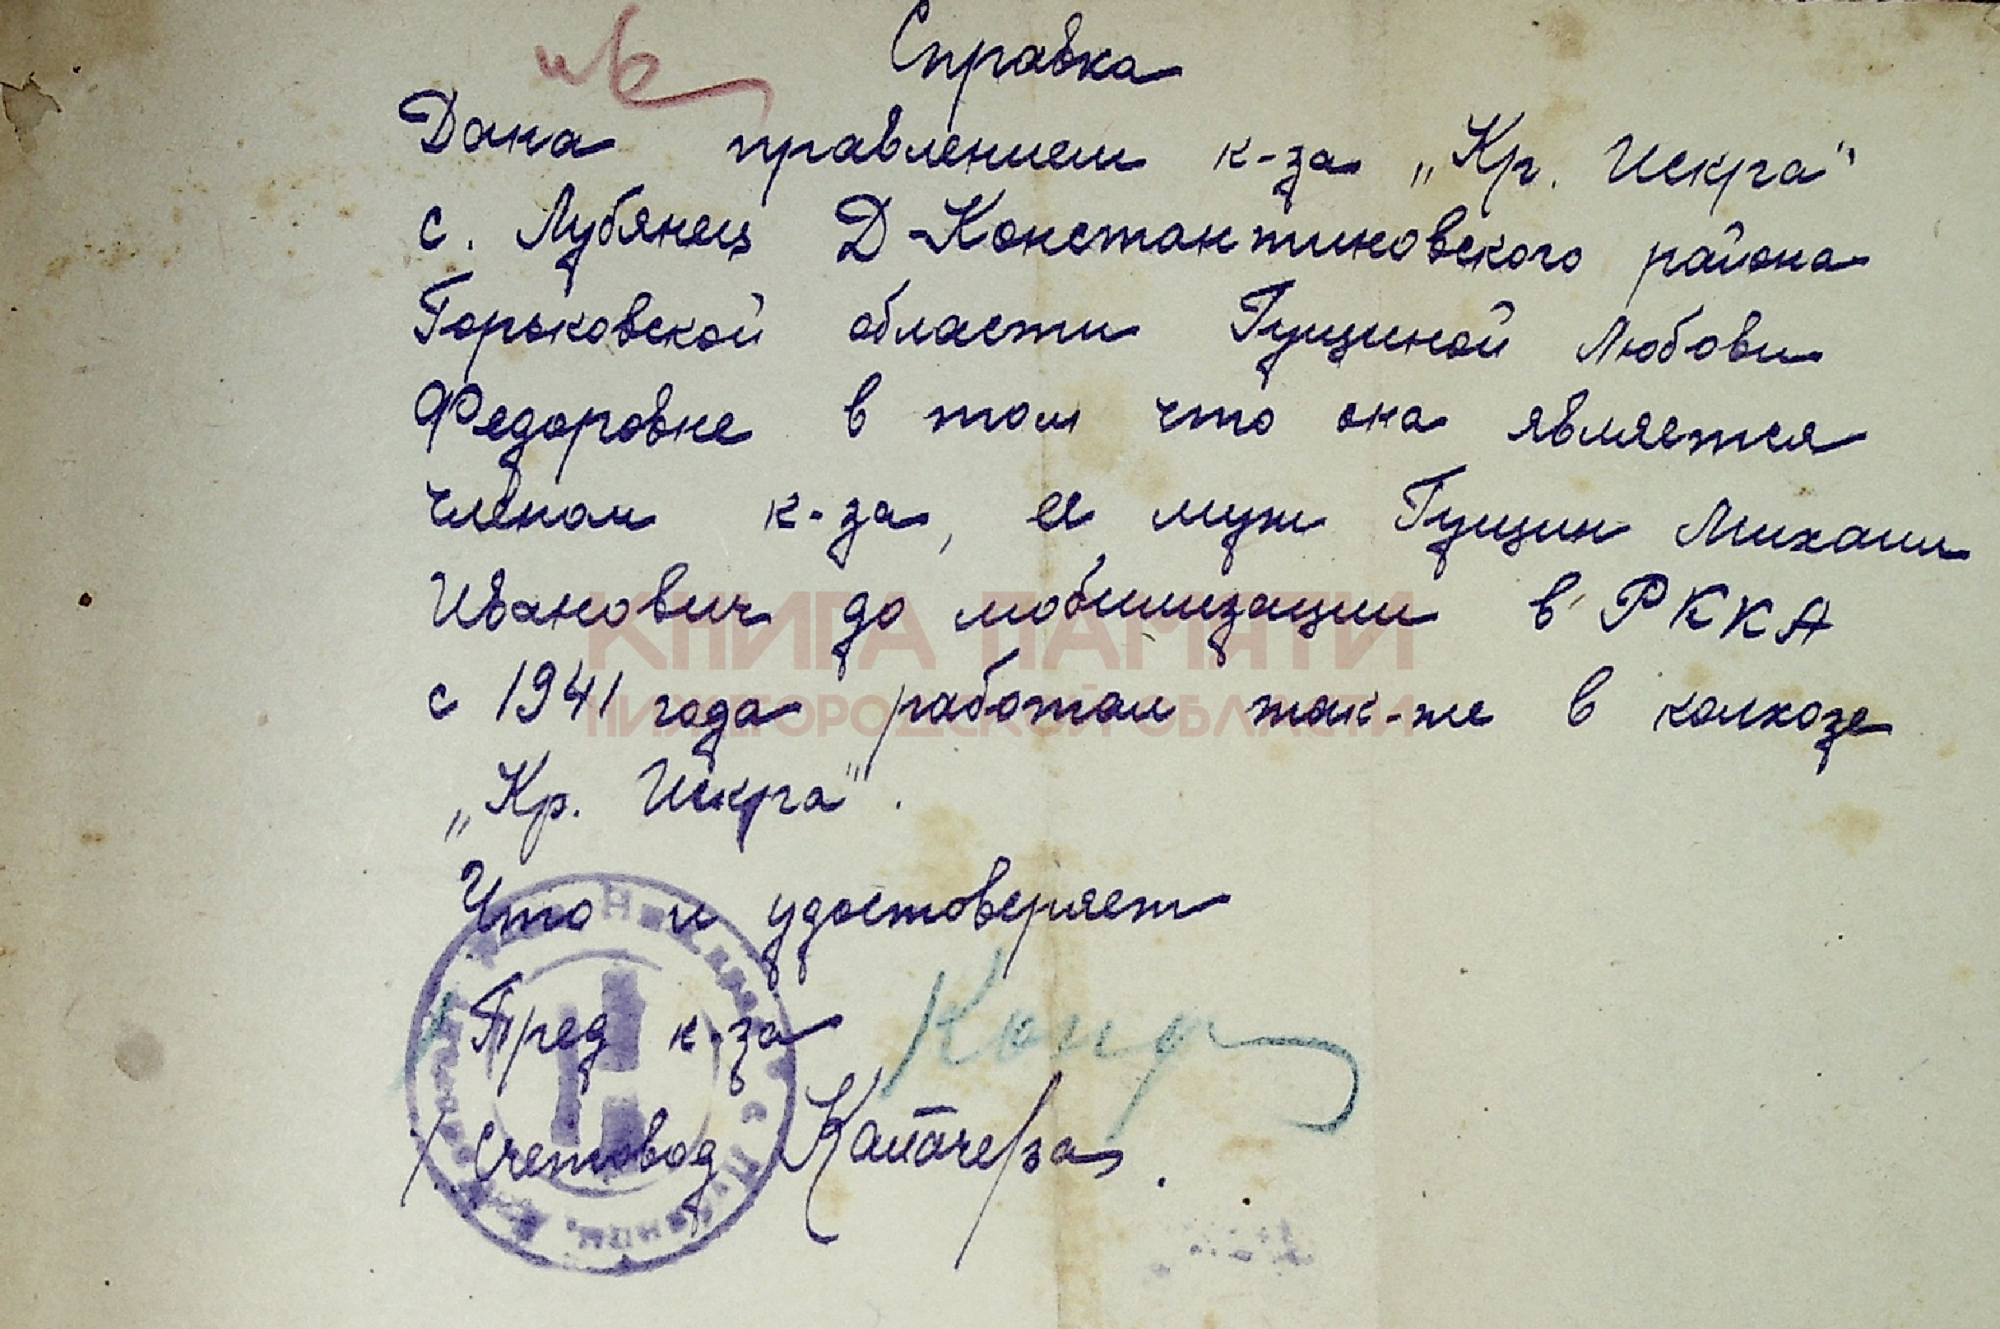 Справка
Дана правлением к-за „Кр. Искра"
с. Лубянец Д-Константиновского района
Горьковской области Гущиной Любови
Федоровне в том что она является
членом к-за, ея муж Гущин Михаил
Иванович до мобилизации в РККА
с 1941 года работал так-же в колхозе
„Кр. Искра".
Что и удостоверяет
Пред к-за
счетовод
КНИГА ПАМЯТИ
НИЖЕГОРОДСКОЙ ОБЛАСТИ